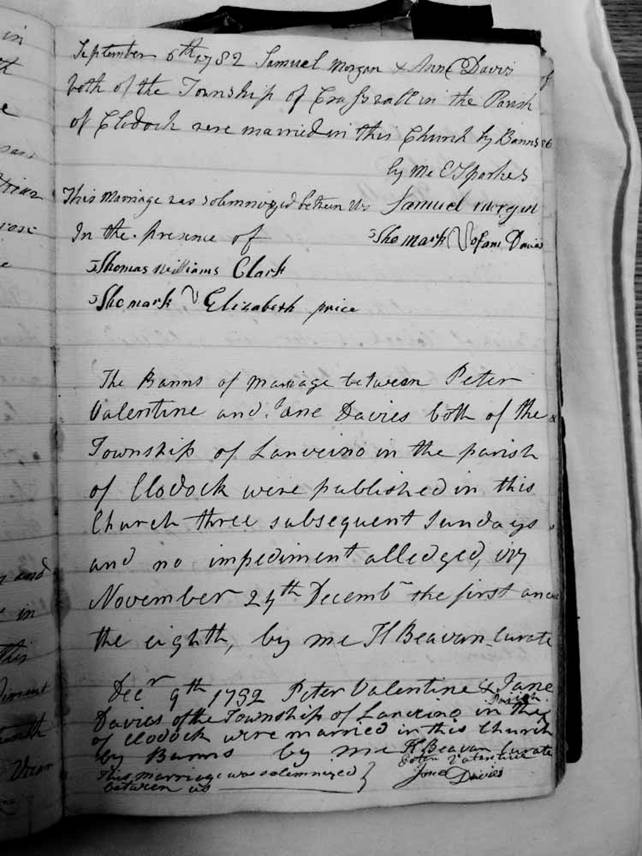 September 6th 1782 Samuel Morgan & Ann Davis
both of the Township of Crasswall in the Parish
of Clodock were married in this Church by Banns
by Me E Sparkes
This Marriage was solemnized between Us Samuel morgan
In the presence of The mark of ane Davis
Thomas Williams Clark
The mark Elizabeth price
The Banns of marriage between Peter
Valentine and Jane Davies both of the
Township of Lanveino in the parish
of Clodock were published in this
Church three subsequent Sundays
and no impediment alledged, viz
November 24th Decembr the first and
the eighth, by me H Beavan Curate
Decr 9th 1782 Peter Valentine & Jane
Davies of the Township of Lanveino in the Parish
of Clodock were married in this Church
by Banns by me H Beavan Curate
This marriage was solemnized Peter Valentine
between us Jane Davies